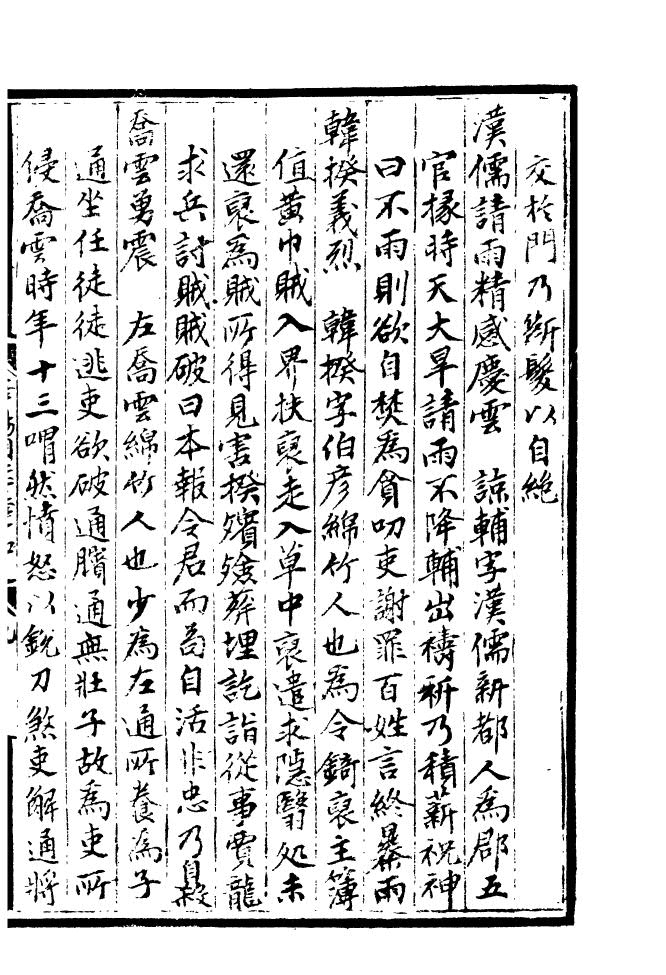 交於門乃斷髮以自絶
漢儒請雨精感慶雲　諒輔字漢儒新都人爲郡五
官掾時天大旱請雨不降輔出禱祈乃積薪祝神
曰不雨則欲自焚爲貪叨吏謝罪百姓言終暴雨
韓揆義烈　韓揆字伯彦綿竹人也爲令錡裒主簿
值黄巾賊入界扶裒走入草中裒遣求隱翳処未
還裒爲賊所得見害揆殯殮葬埋訖詣從事賈龍
求兵討賊賊破曰本報令君而苟自活非忠乃自殺
喬雲勇震　左喬雲綿竹人也少爲左通所養爲子
通坐任徒徒逃吏欲破通臏通無壯子故爲吏所
侵喬雲時年十三喟然憤怒以銳刀煞吏解通將